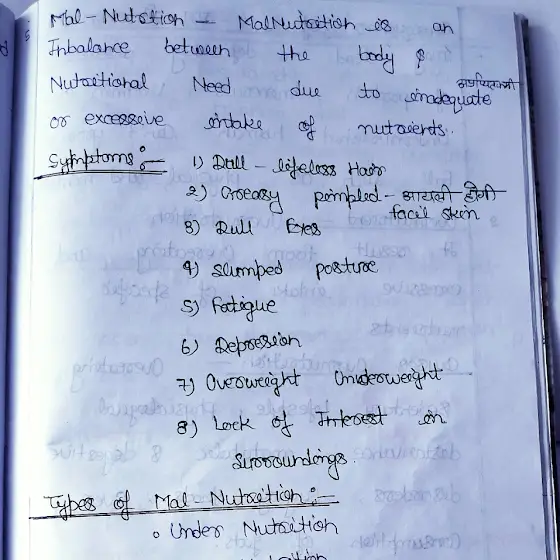 Mal-Nutrition - MalNutrition is an
Inbalance between the body &
Nutritional Need due to inadequate
or excessive intake of nutrients.
Symptoms :-
1) Dull - lifeless Hair
2) Greasy pimpled -
facil skin
3) Dull Eyes
4) Slumped posture
5) Fatigue
6) Depression
7) Overweight Underweight
8) Lack of Interest in
Surroundings.
Types of Mal-Nutrition :-
• Under Nutrition